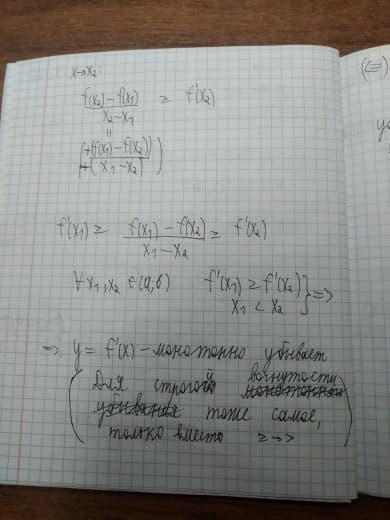 x→x₂:
(f(x₂) – f(x₁))/(x₂ – x₁) ≥ f'(x₂)
||
(+(f(x₁) – f(x₂)))/(+(x₁ – x₂))
f'(x₁) ≥ (f(x₁) – f(x₂))/(x₁ – x₂) ≥ f'(x₂)
∀ x₁, x₂ ∈ (a, b) f'(x₁) ≥ f'(x₂)
x₁ < x₂ } =>
=> y = f'(x) – монотонно убывает
(Для строгой вогнутости монотонного
убывания тоже самое,
только вместо ≥ → >)
(<=)